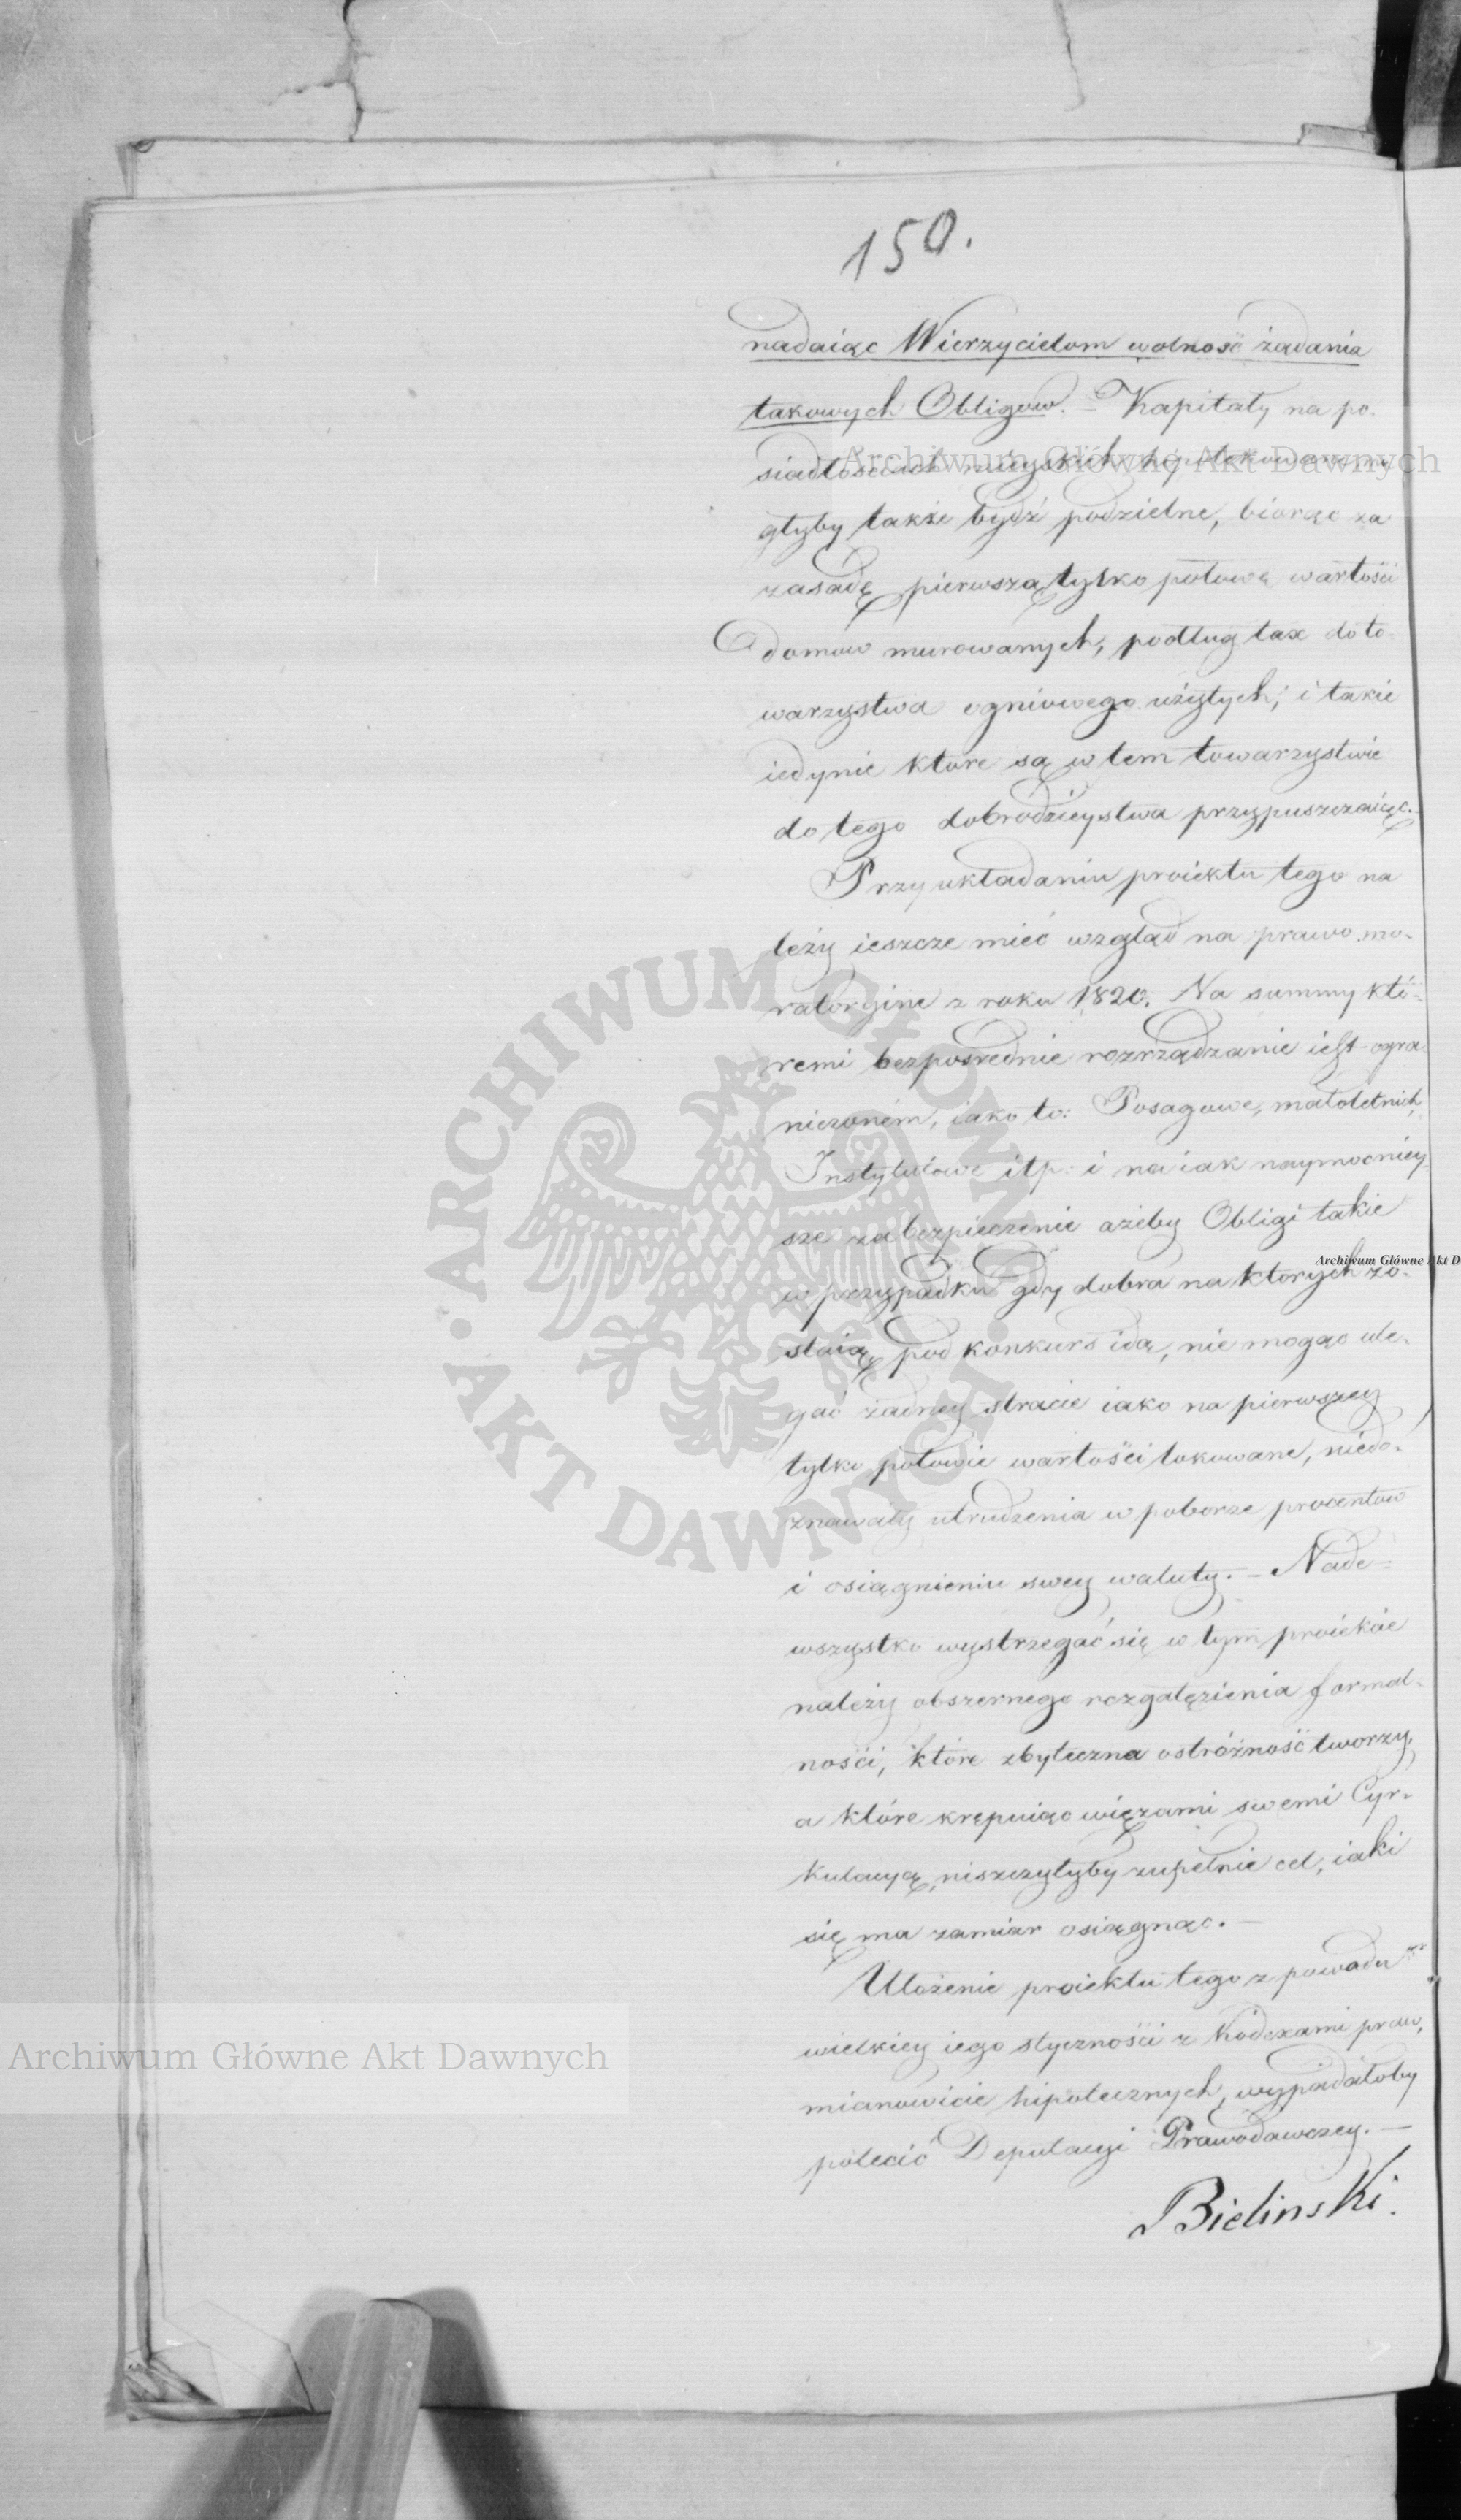 150.
nadaiąc Wierzycielom wolność żądania
takowych Obligow. – Kapitały na po-
siadłościach mieyskich hypotekowane mo-
głyby także bydź podzielne, biorąc za
zasadę pierwszą tylko połowę wartości
domow murowanych, podług tax do to-
warzystwa ogniowego użytych; i takie
iedynie ktore są w tem towarzystwie
do tego dobrodzieystwa przypuszczaiąc.
Przy układaniu proiektu tego na
leży ieszcze mieć wzgląd na prawo mo-
ratoryine z roku 1820. Na summy któ-
remi bezpośrednie rozrządzanie iest ogra-
niczoném, iako to: Posagowe, małoletnich,
Instytutowe itp: i na iak naymocniey-
sze zabezpieczenie ażeby Obligi takie
w przypadku gdy dobra na ktorych zo-
staią pod konkurs idą, nie mogąc ule-
gać żadney stracie iako na pierwszey
tylko połowie wartości lokowane, niedo-
znawały utrudzenia w poborze procentow
i osiągnieniu swey waluty. – Nade-
wszystko wystrzegać się w tym proiekcie
należy obszernego rozgałęzienia formal-
ności, które zbyteczna ostróżność tworzy,
a które krępuiąc więzami swemi Cyr-
kulacyą, niszczyłyby zupełnie cel, iaki
się ma zamiar osiągnąc. –
Ułożenie proiektu tego z powodu
wielkiey iego styczności z Kodexami praw,
mianowicie hipotecznych, wypadałoby
polecić Deputacyi Prawodawczey. –
Bielinski.
Archiwum Główne Akt Dawnych
ARCHIWUM GŁÓWNE
AKT DAWNYCH
Archiwum Główne Akt D
Archiwum Główne Akt Dawnych